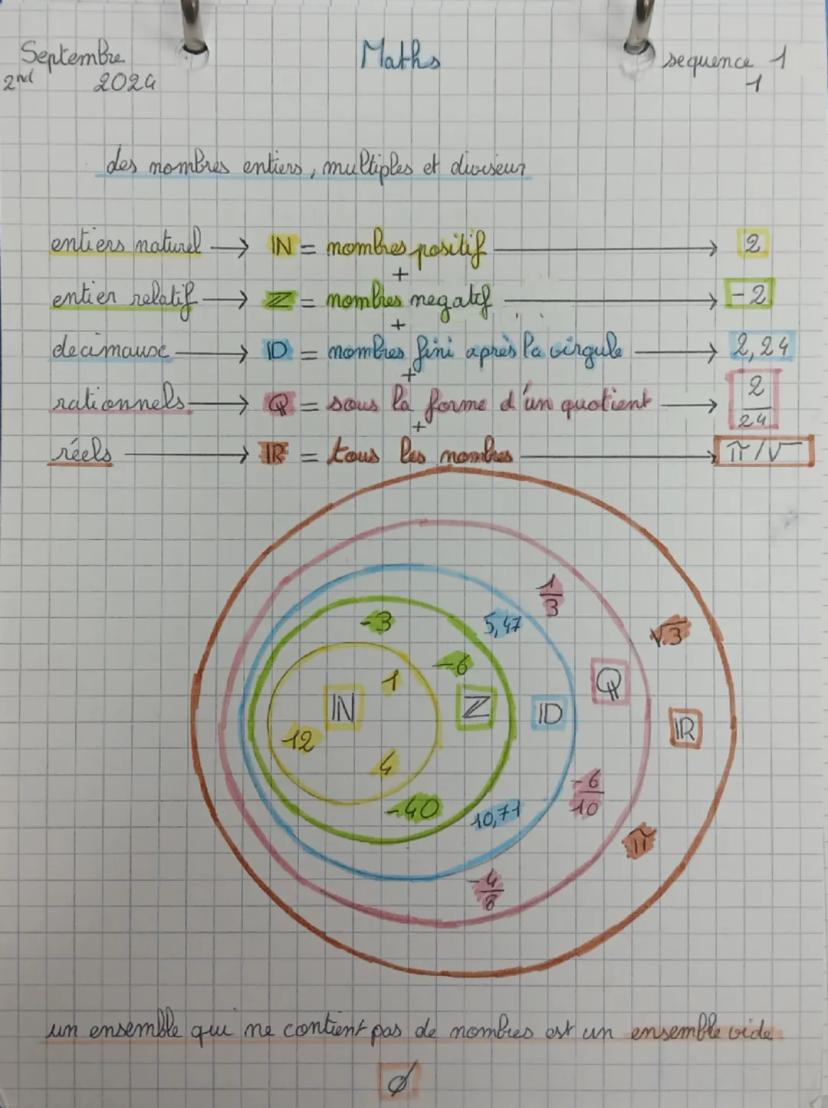 Septembre Maths sequence 1
2nd 2024 1
des nombres entiers, multiples et diviseur
entiers naturel → ℕ = nombres positif → 2
+
entier relatif → ℤ = nombres negatif → -2
+
decimaux → 𝔻 = nombres fini après la virgule → 2,24
+
rationnels → ℚ = sous la forme d'un quotient → 2/24
+
réels → ℝ = tous les nombres → π/√
1/3
-3 5,47 √3
-6
1 ℚ
ℕ ℤ 𝔻 ℝ
12
4 -6/10
-40 10,71 π
-4/8
un ensemble qui ne contient pas de nombres est un ensemble vide
∅